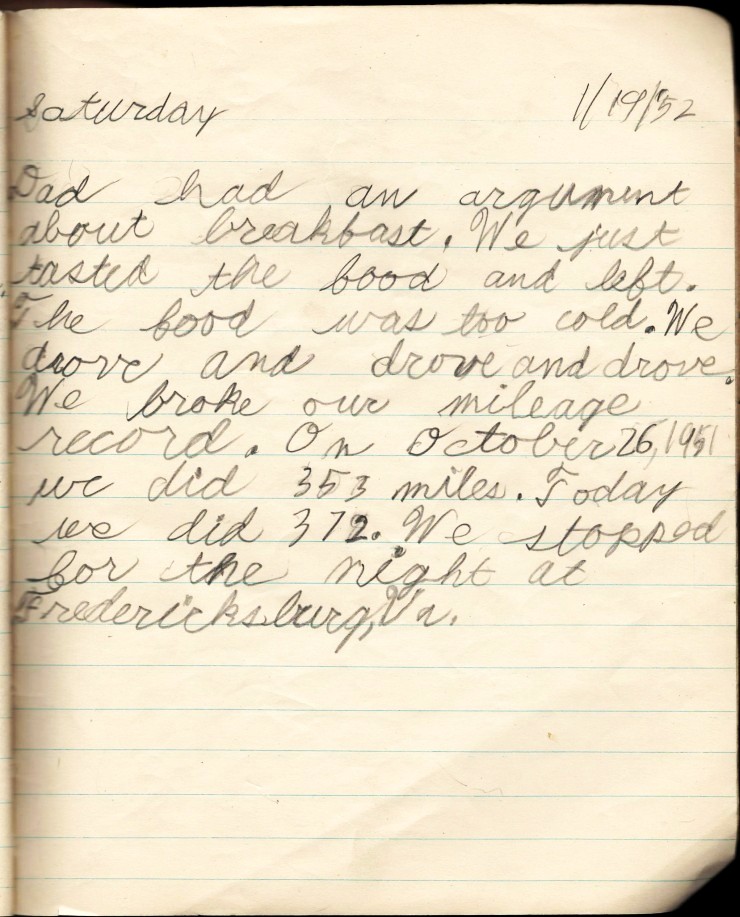 Saturday 1/19/52
Dad had an argument
about breakfast. We just
tasted the food and left.
The food was too cold. We
drove and drove and drove.
We broke our mileage
record. On October 26, 1951
we did 353 miles. Today
we did 372. We stopped
for the night at
Fredericksburg, Va.